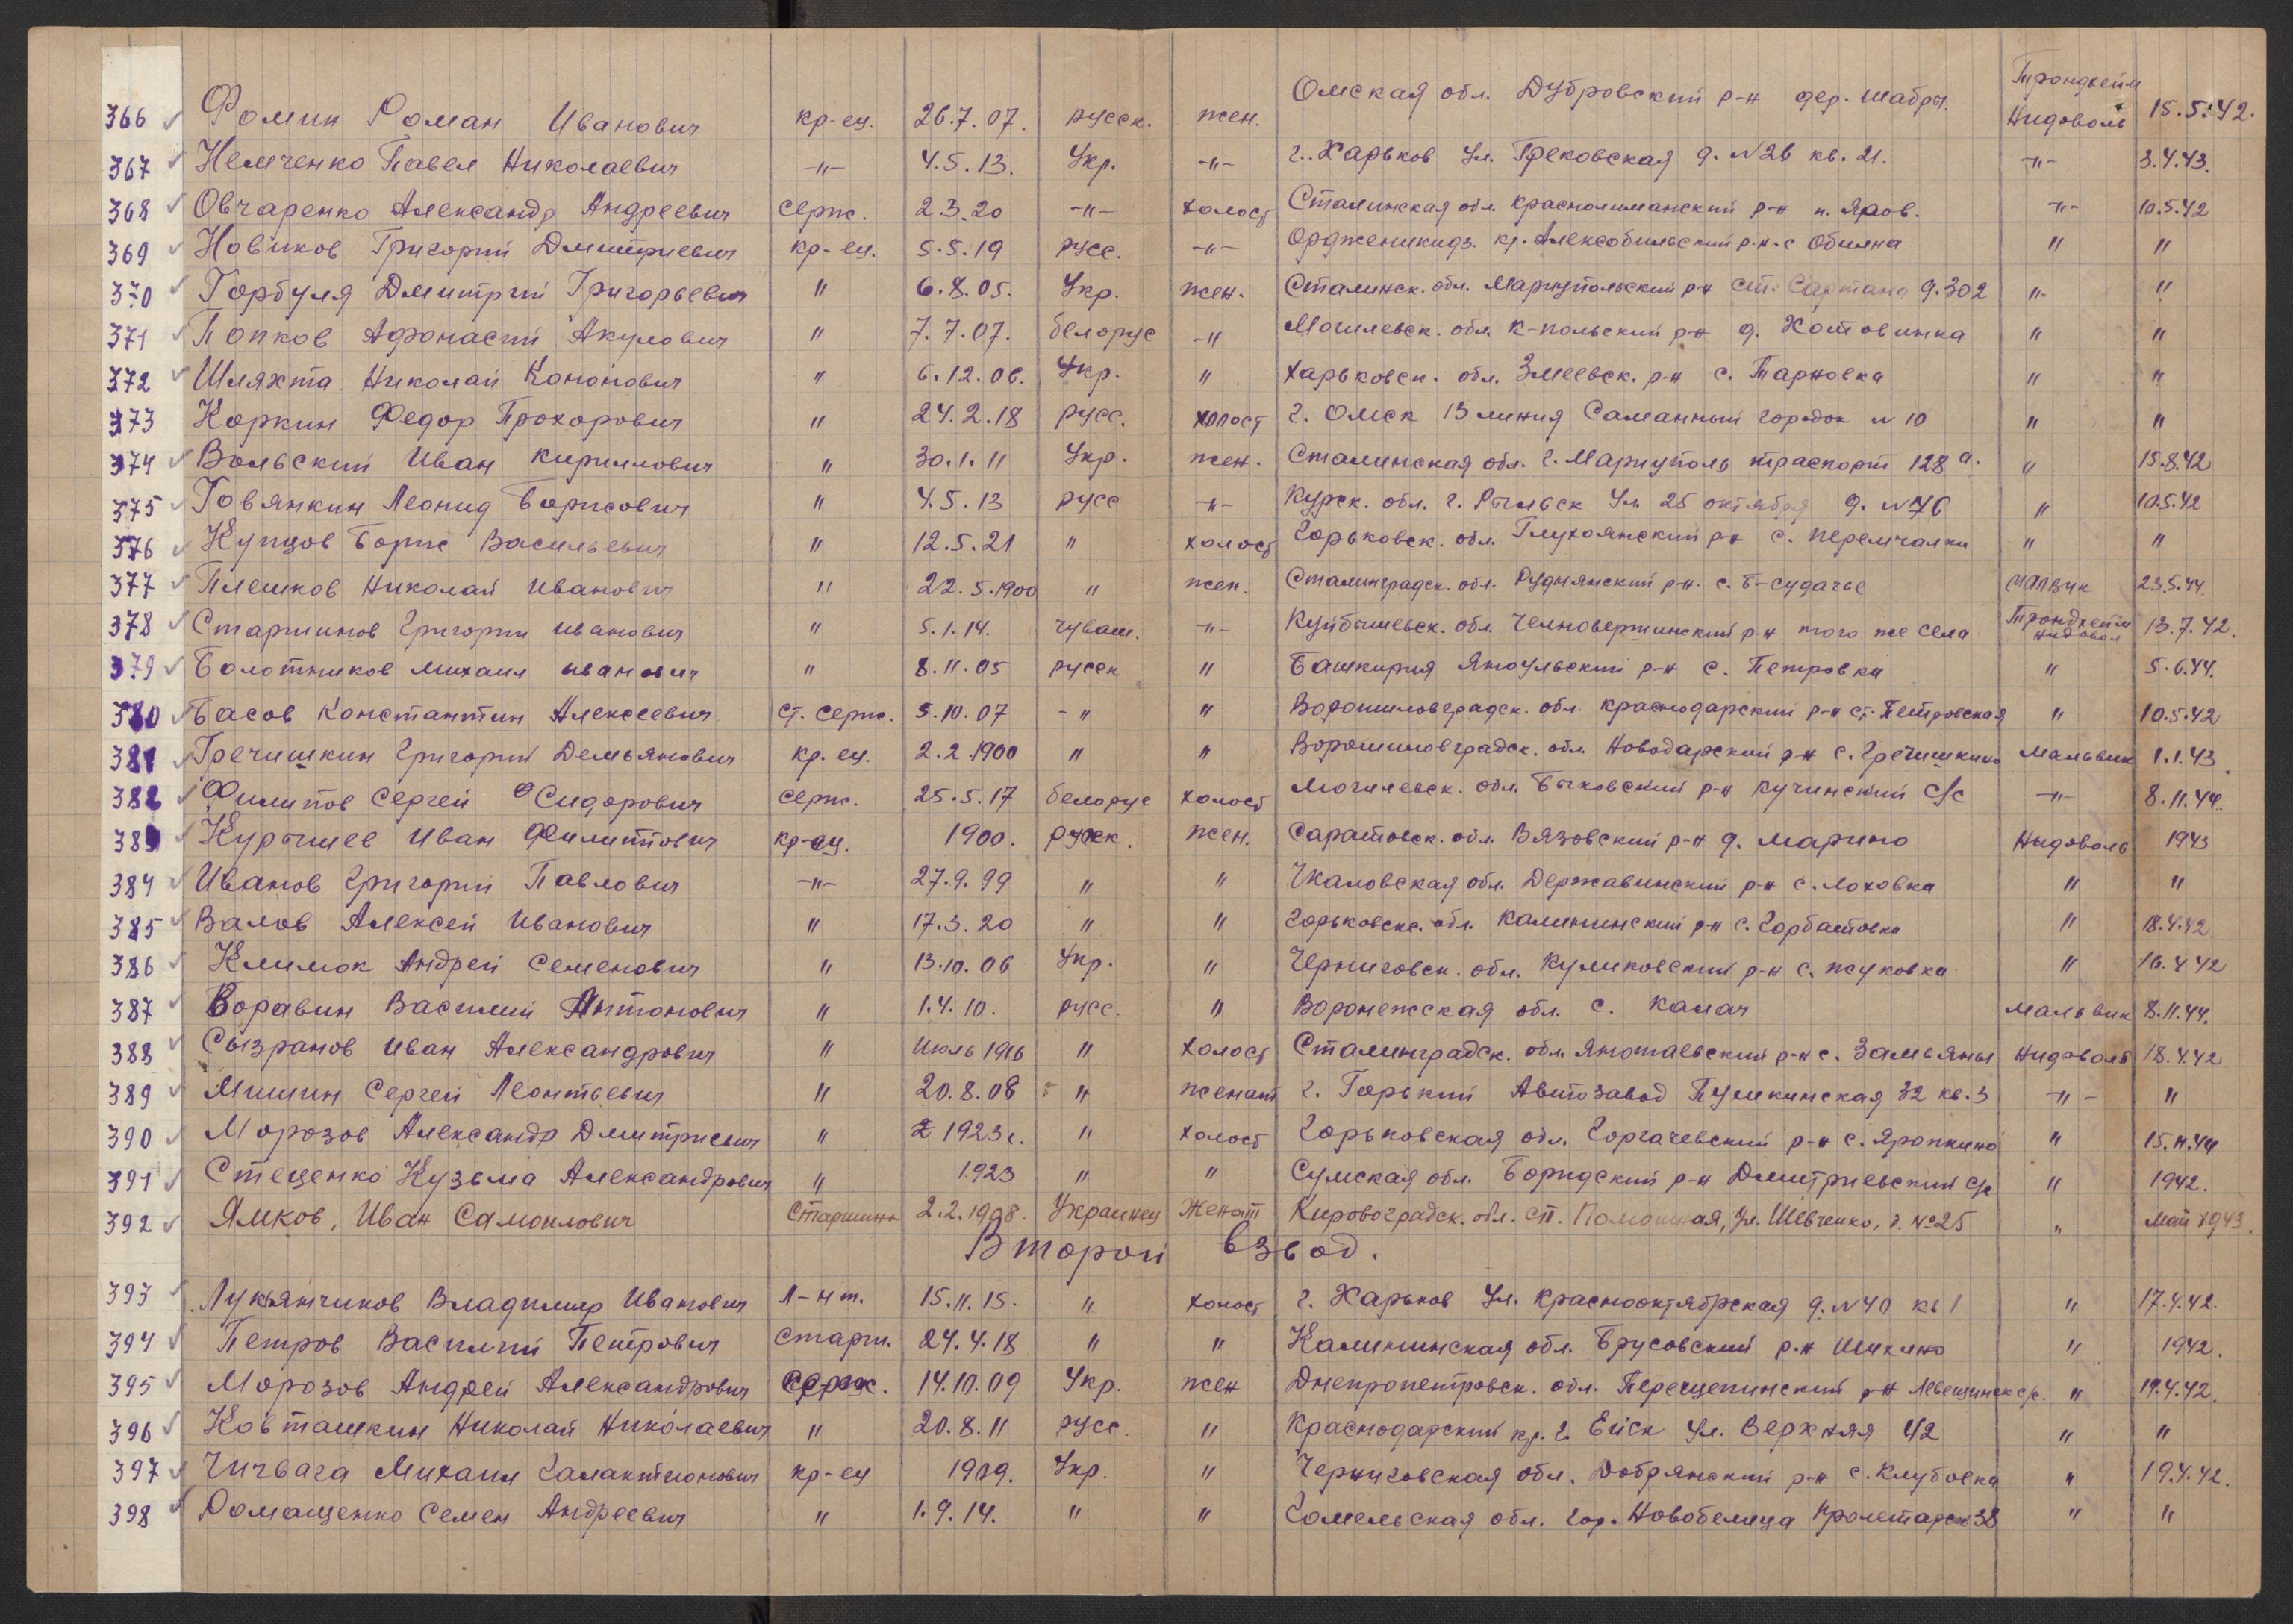 366 Фомин Роман Иванович кр-ец. 26.7.07. русск. жен. Омская обл. Дубровский р-н дер. Шабры. Трондхейм Нидоволь 15.5.42.
367 Немченко Павел Николаевич -"- 4.5.13. Укр. -"- г. Харьков Ул. Грековская д. N 26 кв. 21. -"- 3.4.43.
368 Овчаренко Александр Андреевич серж. 2.3.20 -"- холост Сталинская обл. Краснолиманский р-н п. Яров. -"- 10.5.42
369 Новиков Григорий Дмитриевич кр-ец. 5.5.19 русс. -"- Ордженикидз. кр. р-н с Обилна " "
370 Горбуля Дмитрий Григорьевич " 6.8.05. Укр. жен. Сталинск. обл. Мариупольский р-н ст. Сартана д. 302 " "
371 Попков Афонасий Акулович " 7.7.07. белорус -" Могилевск. обл. К-польский р-н д. Хотовинка " "
372 Шляхта Николай Кононович " 6.12.06. Укр. " Харьковск. обл. Змеевск. р-н с. Тарновка " "
373 Коркин Федор Прохорович " 24.2.18 русс. холост г. Омск 13 линия Саманный городок N 10 " "
374 Вольский Иван Кириллович " 30.1.11 Укр. жен. Сталинская обл. г. Мариуполь траспорт 128 а. " 15.8.42
375 Говянкин Леонид Борисович " 4.5.13 русс -"- Курск. обл. г. Рыльск Ул. 25 октября д. N 76 " 10.5.42
376 Купцов Борис Васильевич " 12.5.21 " холост Горьковск. обл. р-н с. Перемчалки " "
377 Плешков Николай Иванович " 22.5.1900 " жен. Сталинградск. обл. Руднянский р-н. с. Б-Судачье Малвик 23.5.44
378 Старшинов Григорий Иванович " 5.1.14. чуваш. -"- Куйбышевск. обл. Челновершинский р-н того же села Трондхейм Нидовол 13.7.42.
379 Болотников Михаил Иванович " 8.11.05 русск " Башкирия Яноульский р-н с. Петровка " 5.6.44.
380 Басов Константин Алексеевич ст. серж. 5.10.07 -" " Ворошиловградск. обл. Краснодарский р-н ст. Петровская " 10.5.42
381 Гречишкин Григорий Демьянович кр. ец. 2.2.1900 " " Ворошиловградск. обл. Новодарский р-н с. Гречишкино Мальвик 1.1.43.
382 Филипов Сергей Сидорович серж. 25.5.17 белорус холост Могилевск. обл. Быховский р-н Кучинский с/с -"- 8.11.44.
383 Курышев Иван Филиппович кр-ец. 1900. русск. жен. Саратовск. обл. Вязовский р-н д. Марино Нидоволь 1943
384 Иванов Григорий Павлович -"- 27.9.99 " " Чкаловская обл. Державинский р-н с. Лоховка " "
385 Валов Алексей Иванович " 17.3.20 " " Горьковск. обл. Калининский р-н с. Горбатовка " 18.4.42.
386 Климок Андрей Семенович " 13.10.06 Укр. " Черниговск. обл. Куликовский р-н с. Жуковка " 16.4.42
387 Воравин Василий Антонович " 1.4.10. русс. " Воронежская обл. с. Калач Мальвик 8.11.44.
388 Сызранов Иван Александрович " Июль 1916 " холост Сталинградск. обл. Янотаевский р-н с. Замьяны Нидоволь 18.4.42
389 Мишин Сергей Леонтьевич " 20.8.08 " женат г. Горький Автозавод Пушкинская 32 кв. 3 -"- "
390 Морозов Александр Дмитриевич " 1923 г. " холост Горьковская обл. Горгачевский р-н с. Яропкино " 15.11.44
391 Стеценко Кузьма Александрович " 1923 " " Сумская обл. р-н Дмитриевский с/с " 1942.
392 Ямков, Иван Самоилович Старшина 2.2.1908. Украинец Женат Кировоградск. обл. ст. Помошная, Ул. Шевченко, д. №25 " Май 1943.
Второй взвод.
393 Лукьянчиков Владимир Иванович Л-нт. 15.11.15. " холост г. Харьков Ул. Краснооктябрская д. N 40 кв 1 " 17.4.42.
394 Петров Василий Петрович старш. 24.4.18 " " Калининская обл. Брусовский р.н Шихино " 1942.
395 Морозов Андрей Александрович серж. 14.10.09 Укр. жен Днепропетровск. обл. Перещепинский р-н с/с. " 19.4.42.
396 Ковташкин Николай Николаевич " 20.8.11 русс. " Краснодарский кр. г. Ейск Ул. Верхняя 42 " "
397 Чичвага Михаил Галактионович кр-ец 1909. Укр. " Черниговская обл. Добрянский р-н с. Клубовка " 19.4.42.
398 Ромащенко Семен Андреевич " 1.9.14. " " Гомельская обл. гор. Новобелица Пролетарск 38 " "